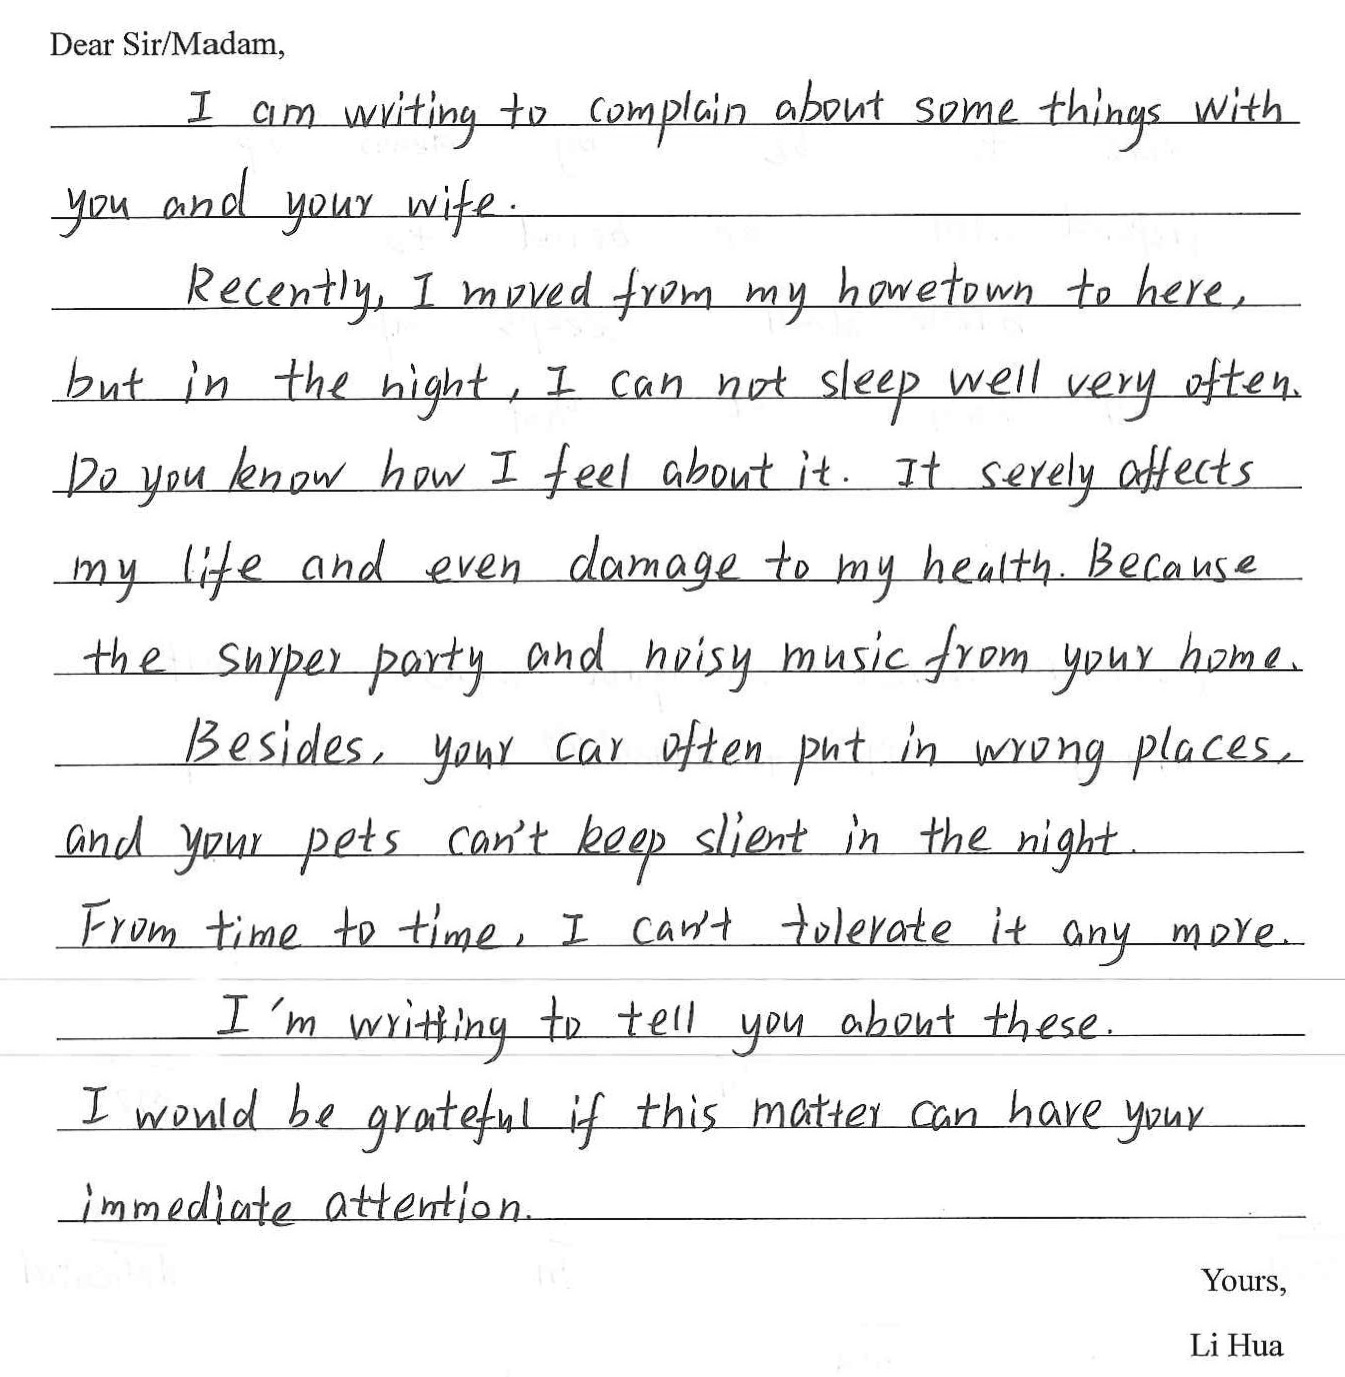 Dear Sir/Madam,
I am writing to complain about some things with
you and your wife.
Recently, I moved from my howetown to here,
but in the night, I can not sleep well very often.
Do you know how I feel about it. It serely affects
my life and even damage to my health. Because
the surper party and noisy music from your home.
Besides, your car often put in wrong places,
and your pets can't keep slient in the night.
From time to time, I can't tolerate it any more.
I'm writting to tell you about these.
I would be grateful if this matter can have your
immediate attention.
Yours,
Li Hua